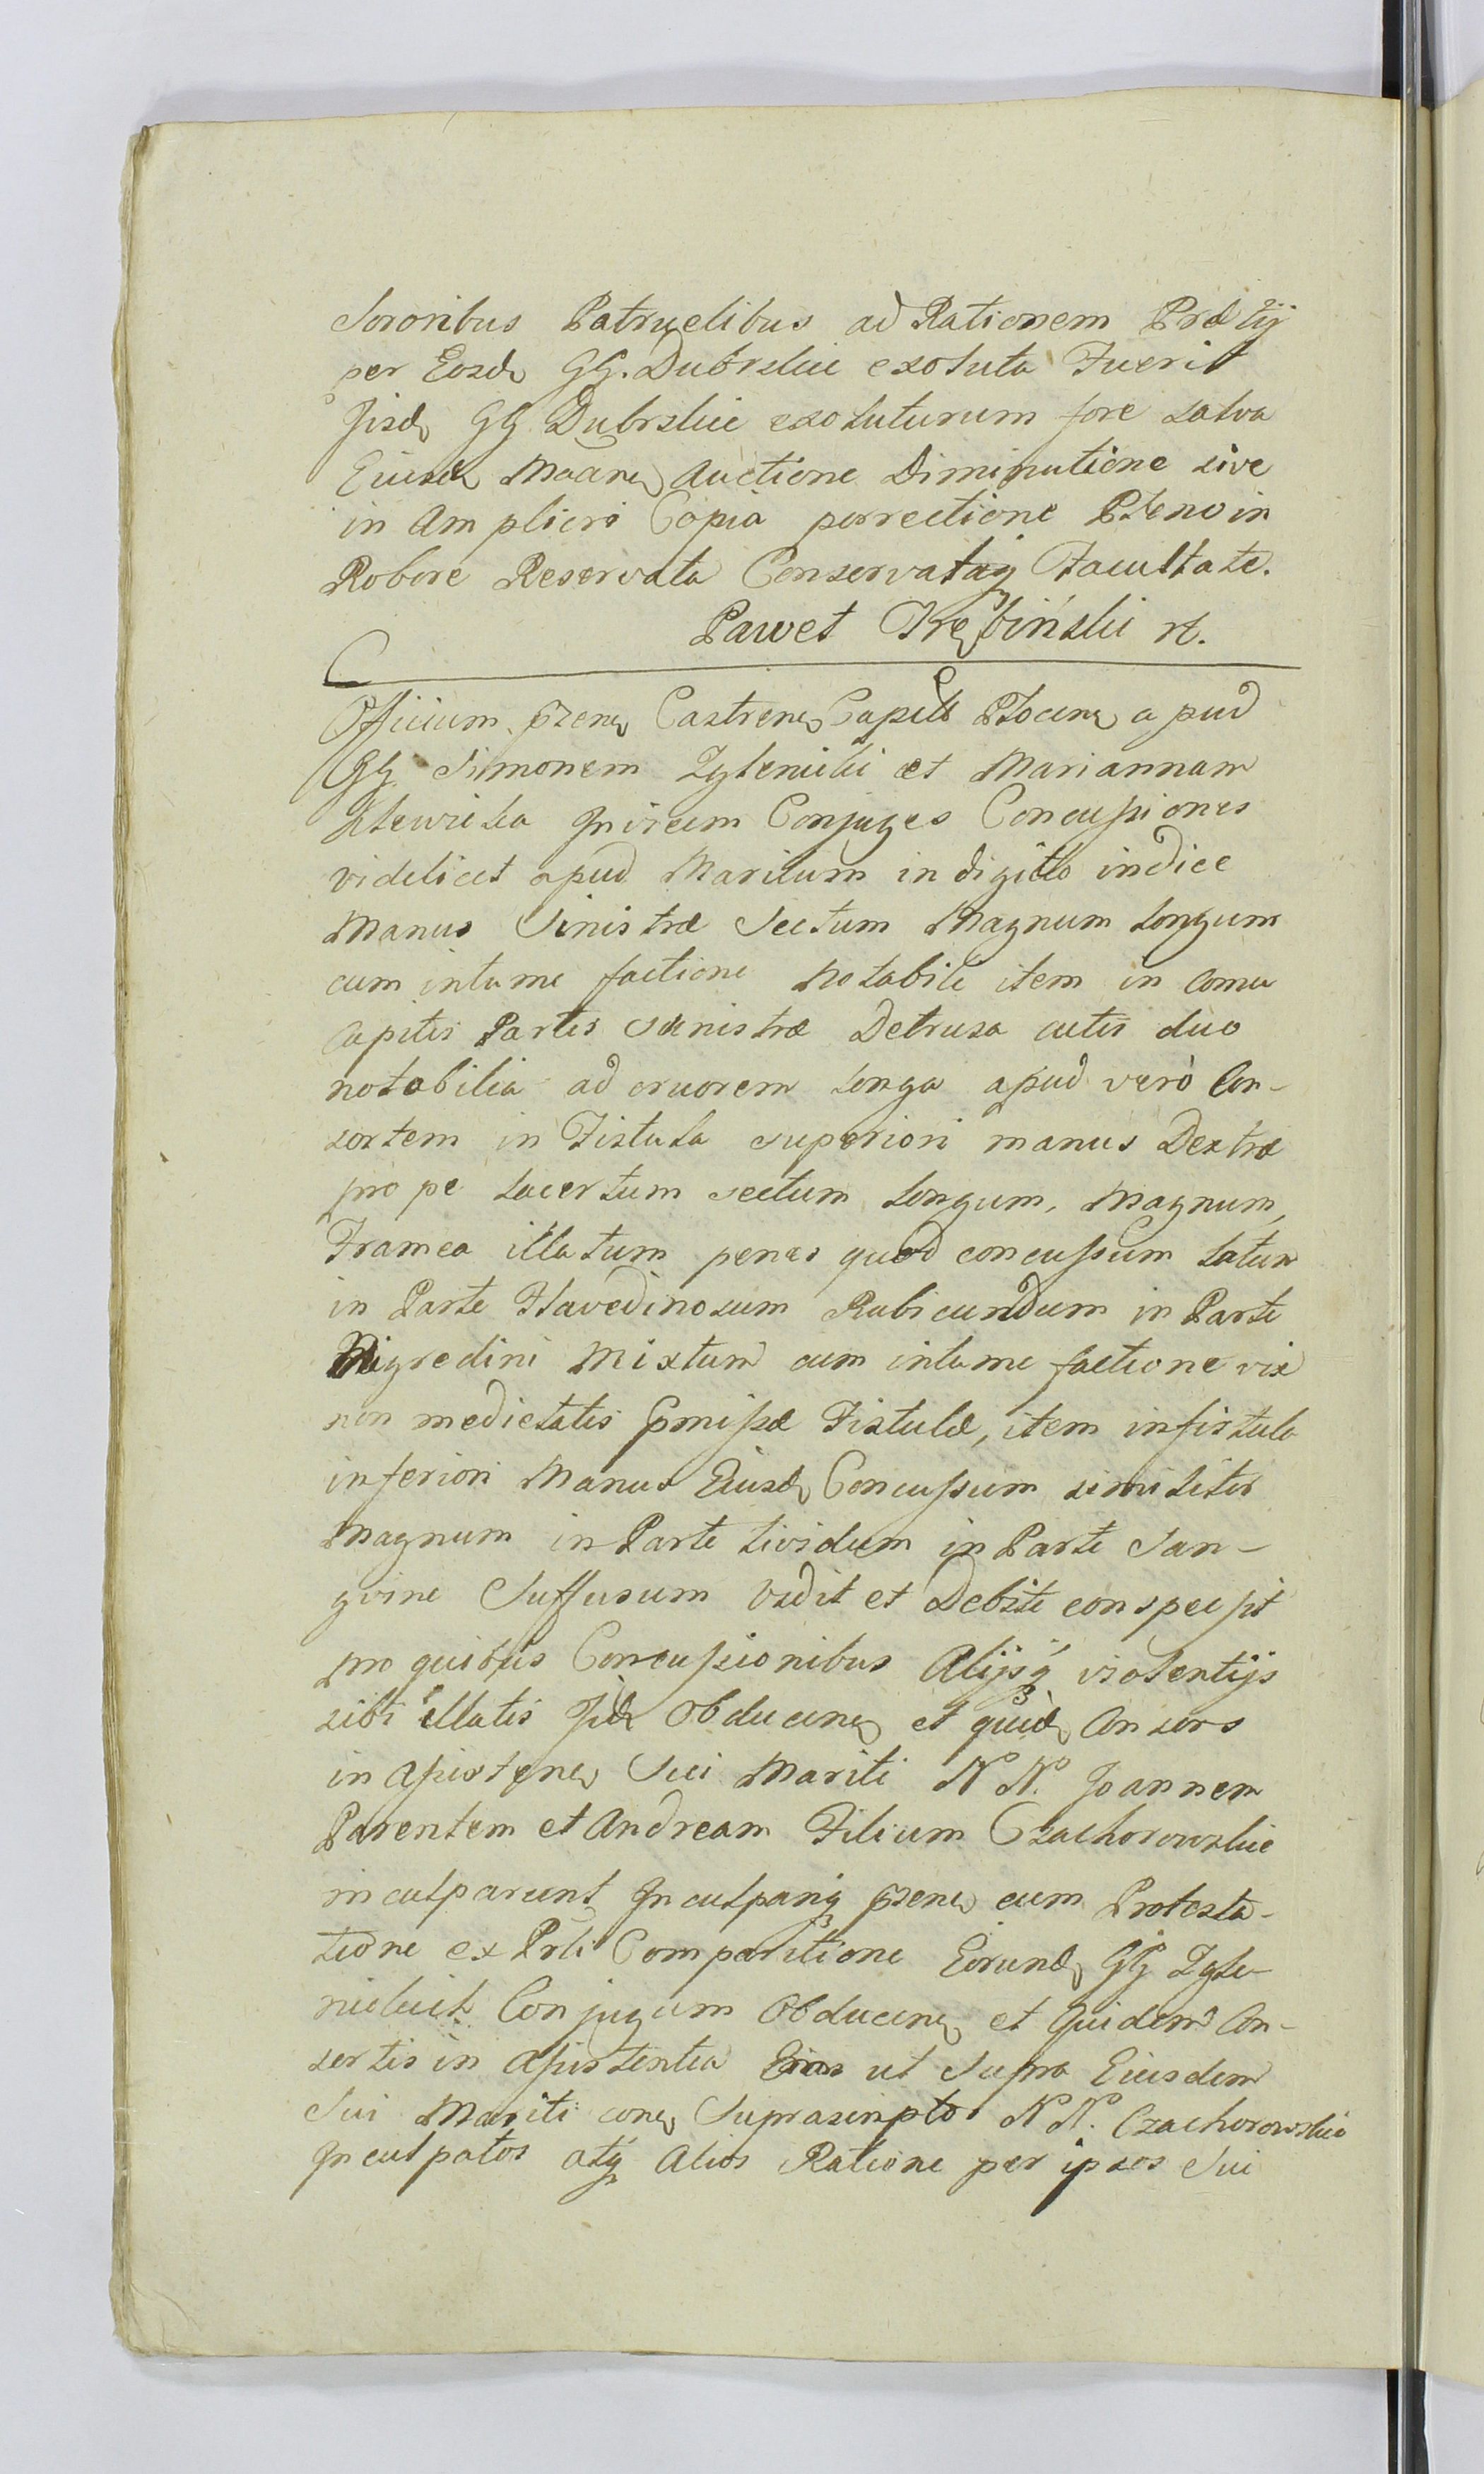 Sororibus Patruelibus ad Rationem Prætij
per Eosd. GG. Dubrskie exoluta Fuerit
Jisd. GG Dubrskie exoluturum fore salva
Eiusd. Maane. Auctione Diminutione sive
in Ampliori Copia porrectione Pleno in
Robore Reservata Conservataq Facultate.
Paweł Trębiński
Officium pzene. Castrene. Capitle Plocene. apud
GG. Simonem Zglenicki et Mariannam
Invicem Conjuges Concussiones
videlicet apud Maritum in digitto indice
Manus Sinistræ Sectum Magnum longum
cum intume factione Notabili item in Coma
Capitis Partis Sinistræ Detrusa cutis duo
notabilia ad cruorem longa apud verò Con-
sortem in Fistula superiori manus Dextræ
prope lacertum sectum longum, magnum,
Framea illatum penes quod concussum latum
in Parte Flavedinosum Rubicundum in Parte
Nigredini Mixtum cum intume factione vix
non medietatis pmissæ Fistulæ, item in fistula
inferiori Manus Eiusd. Concussum similiter
Magnum in Parte lividum in Parte San-
gvine Suffusum Vidit et Debite conspexit
pro quibus Concussionibus Alijsq violentijs
sibi illatis Jid. Obducene. et quid. Consors
in Assistene. Sui Mariti N N. Joannem
Parentem et Andream Filium Czachorowskie
inculparunt Inculpantq pzene. cum Protesta-
tione ex Prli Comparitione Eorund. GG Zgle-
nickich Conjugum Obducene. et Quidem Con-
sortis in Assistentia ut Supra Eiusdem
Sui Mariti cone. Suprascriptos N N. Czachorowskie
Inculpatos atq Alios Ratione per ipsos Sui